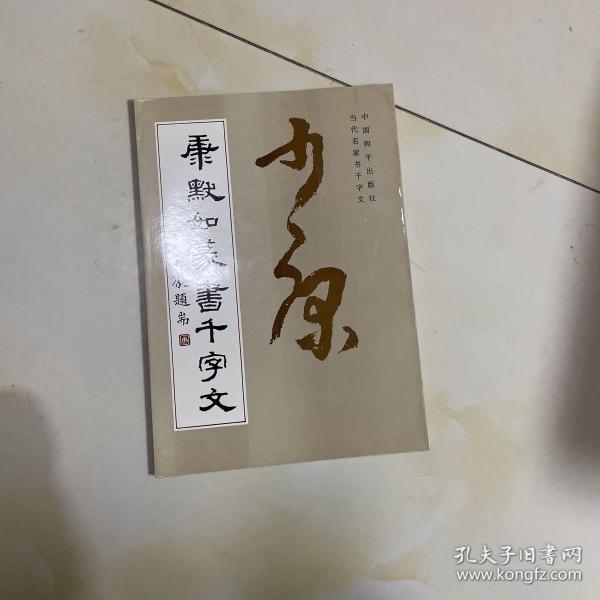 中国和平出版社
当代名家书千字文
康默如篆書千字文
题耑
孔夫子旧书网
www.kongfz.com